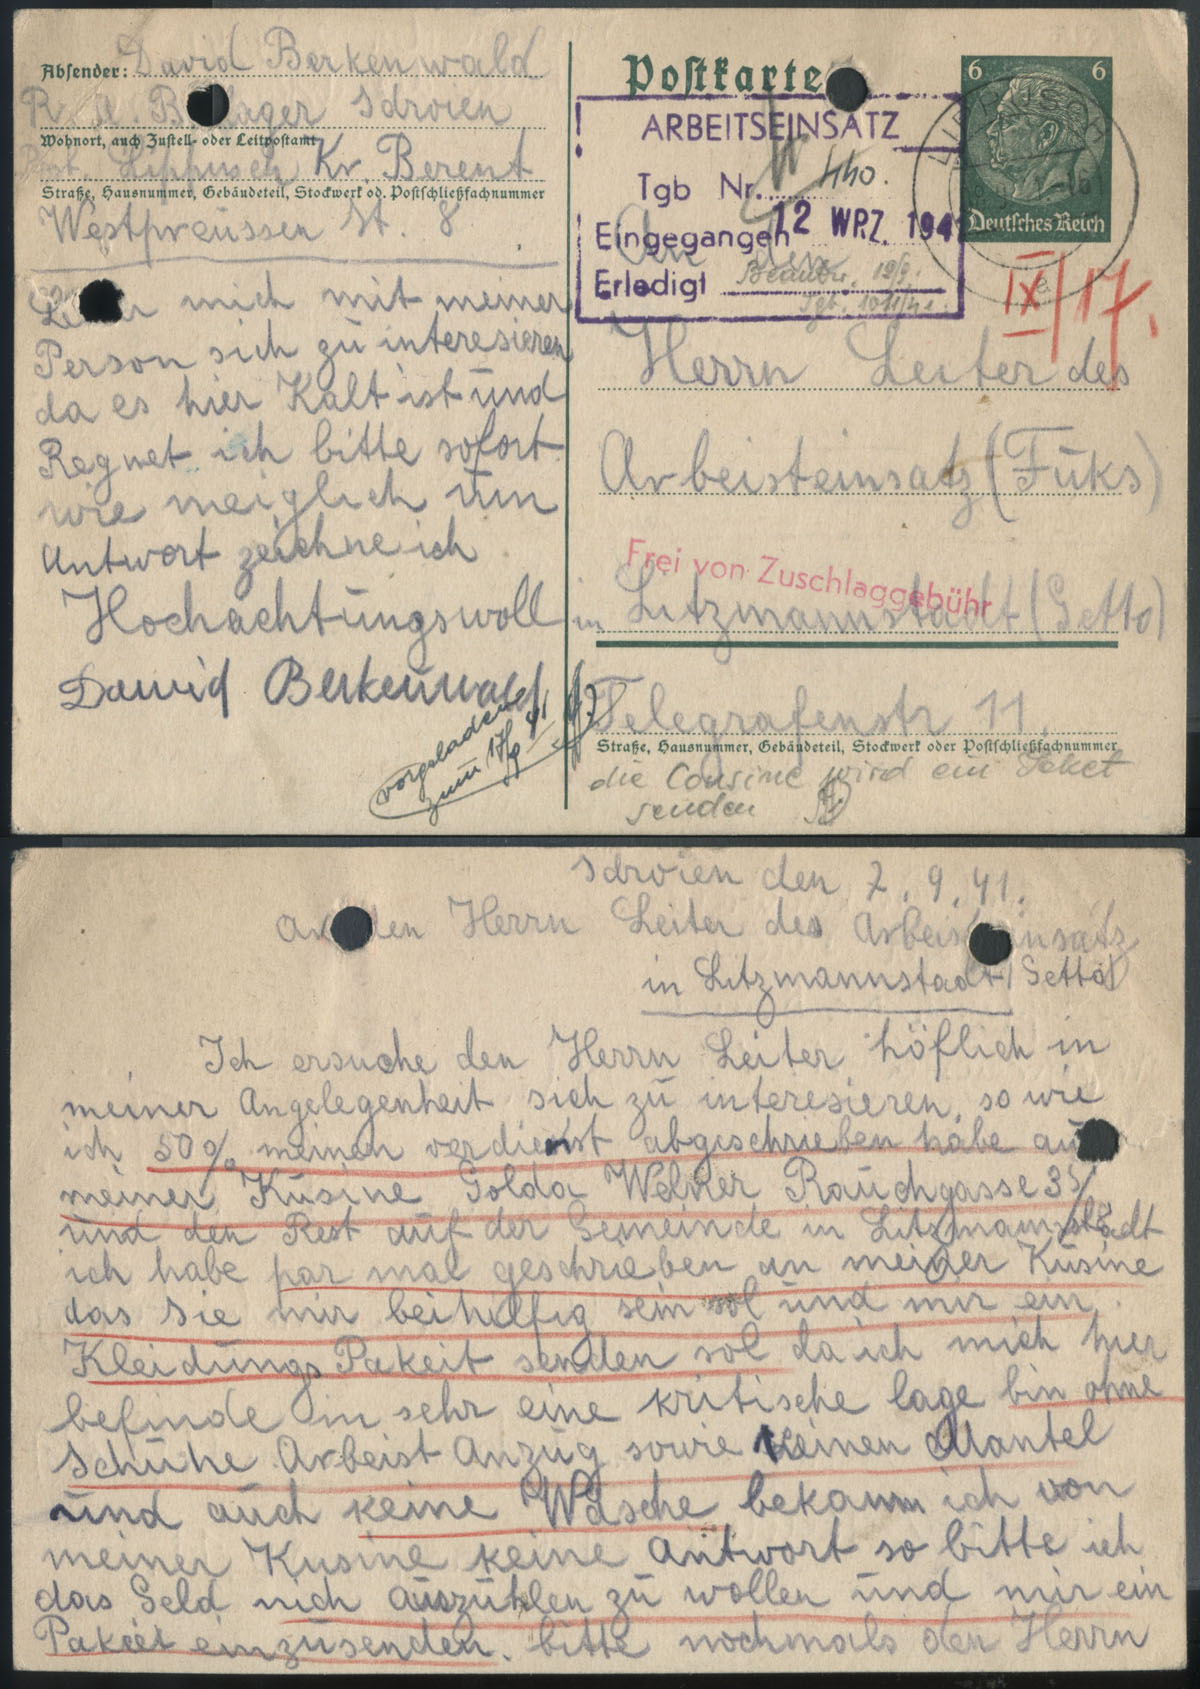 Absender: David Berkenwald
R. A. B. Lager Sdroien
Wohnort, auch Zustell- oder Leitpostamt
Post. Lippusch Kr. Berent
Straße, Hausnummer, Gebäudeteil, Stockwerk od. Postschließfachnummer
Westpreussen St. 8
Leiter mich mit meiner
Person sich zu interesieren
da es hier Kalt ist und
Regnet ich bitte sofort
wie meiglich um
Antwort zeichne ich
Hochachtungswoll
Dawid Berkenwald
vorgeladen
zum 17/9 41
Postkarte
6 6
Deutsches Reich
LIPPUSCH
ARBEITSEINSATZ
Tgb Nr. 440.
Eingegangen 12 WRZ. 194
Erledigt Beantw. 19/9.
Tgb. 1011/41.
IX/17.
An den
Herrn Leiter des
Arbeisteinsatz (Fuks)
Frei von Zuschlaggebühr
in Litzmannstadt (Getto)
Telegrafenstr 11.
Straße, Hausnummer, Gebäudeteil, Stockwerk oder Postschließfachnummer
die Cousine wird ein Paket
senden
Sdroien den 7.9.41.
An den Herrn Leiter des Arbeisteinsatz
in Litzmannstadt (Getto)
Ich ersuche den Herrn Leiter höflich in
meiner Angelegenheit sich zu interesieren, so wie
ich 50% meinen verdienst abgeschrieben habe auf
meiner Kusine Golda Welner Rauchgasse 35/
und den Rest auf der Gemeinde in Litzmannstadt
ich habe par mal geschrieben an meiner Kusine
das Sie mir beihilfig sein sol und mir ein
Kleidungs Pakeit senden sol da ich mich hier
befinde in sehr eine kritische lage bin ohne
Schuhe Arbeist Anzug sowie keinen Mantel
und auch keine Wäsche bekamm ich von
meiner Kusine keine Antwort so bitte ich
das Geld nich auszuhlen zu wollen und mir ein
Pakeit einzusenden. bitte nochmals den Herrn